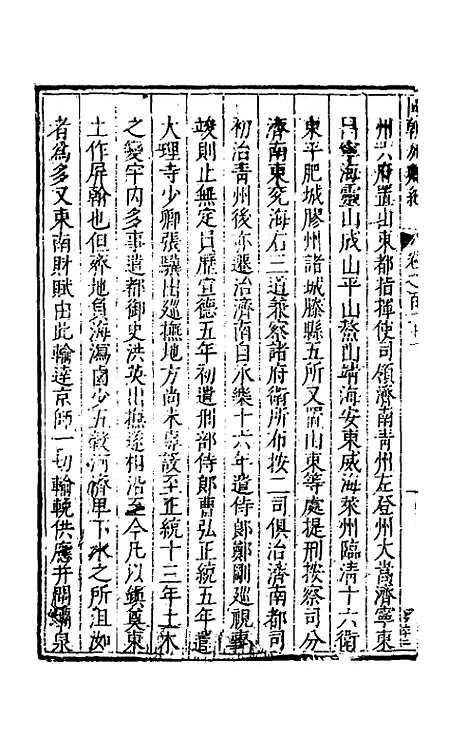 州六府置山東都指揮使司領濟南青州左登州大嵩濟寧東
昌寧海靈山成山平山鰲山靖海安東威海萊州臨清十六衛
東平肥城膠州諸城滕縣五所又置山東等處提刑按察司分
濟南東兗海右三道兼察諸府衛所布按二司俱治濟南都司
初治青州後亦遷治濟南自永樂十六年遣侍郎鄭剛巡視事
竣則止無定員歷宣德五年初遣刑部侍郎曹弘正統五年遣
大理寺少卿張驥出巡撫地方尚未專設至正統十三年土木
之變宇内多事遣都御史洪英出撫遂相沿至今凡以鎮奠東
土作屏翰也但齊地負海瀉鹵少五穀河濟卑下水之所沮洳
者爲多又東南財賦由此輸達京師一切輸輓供應井閭